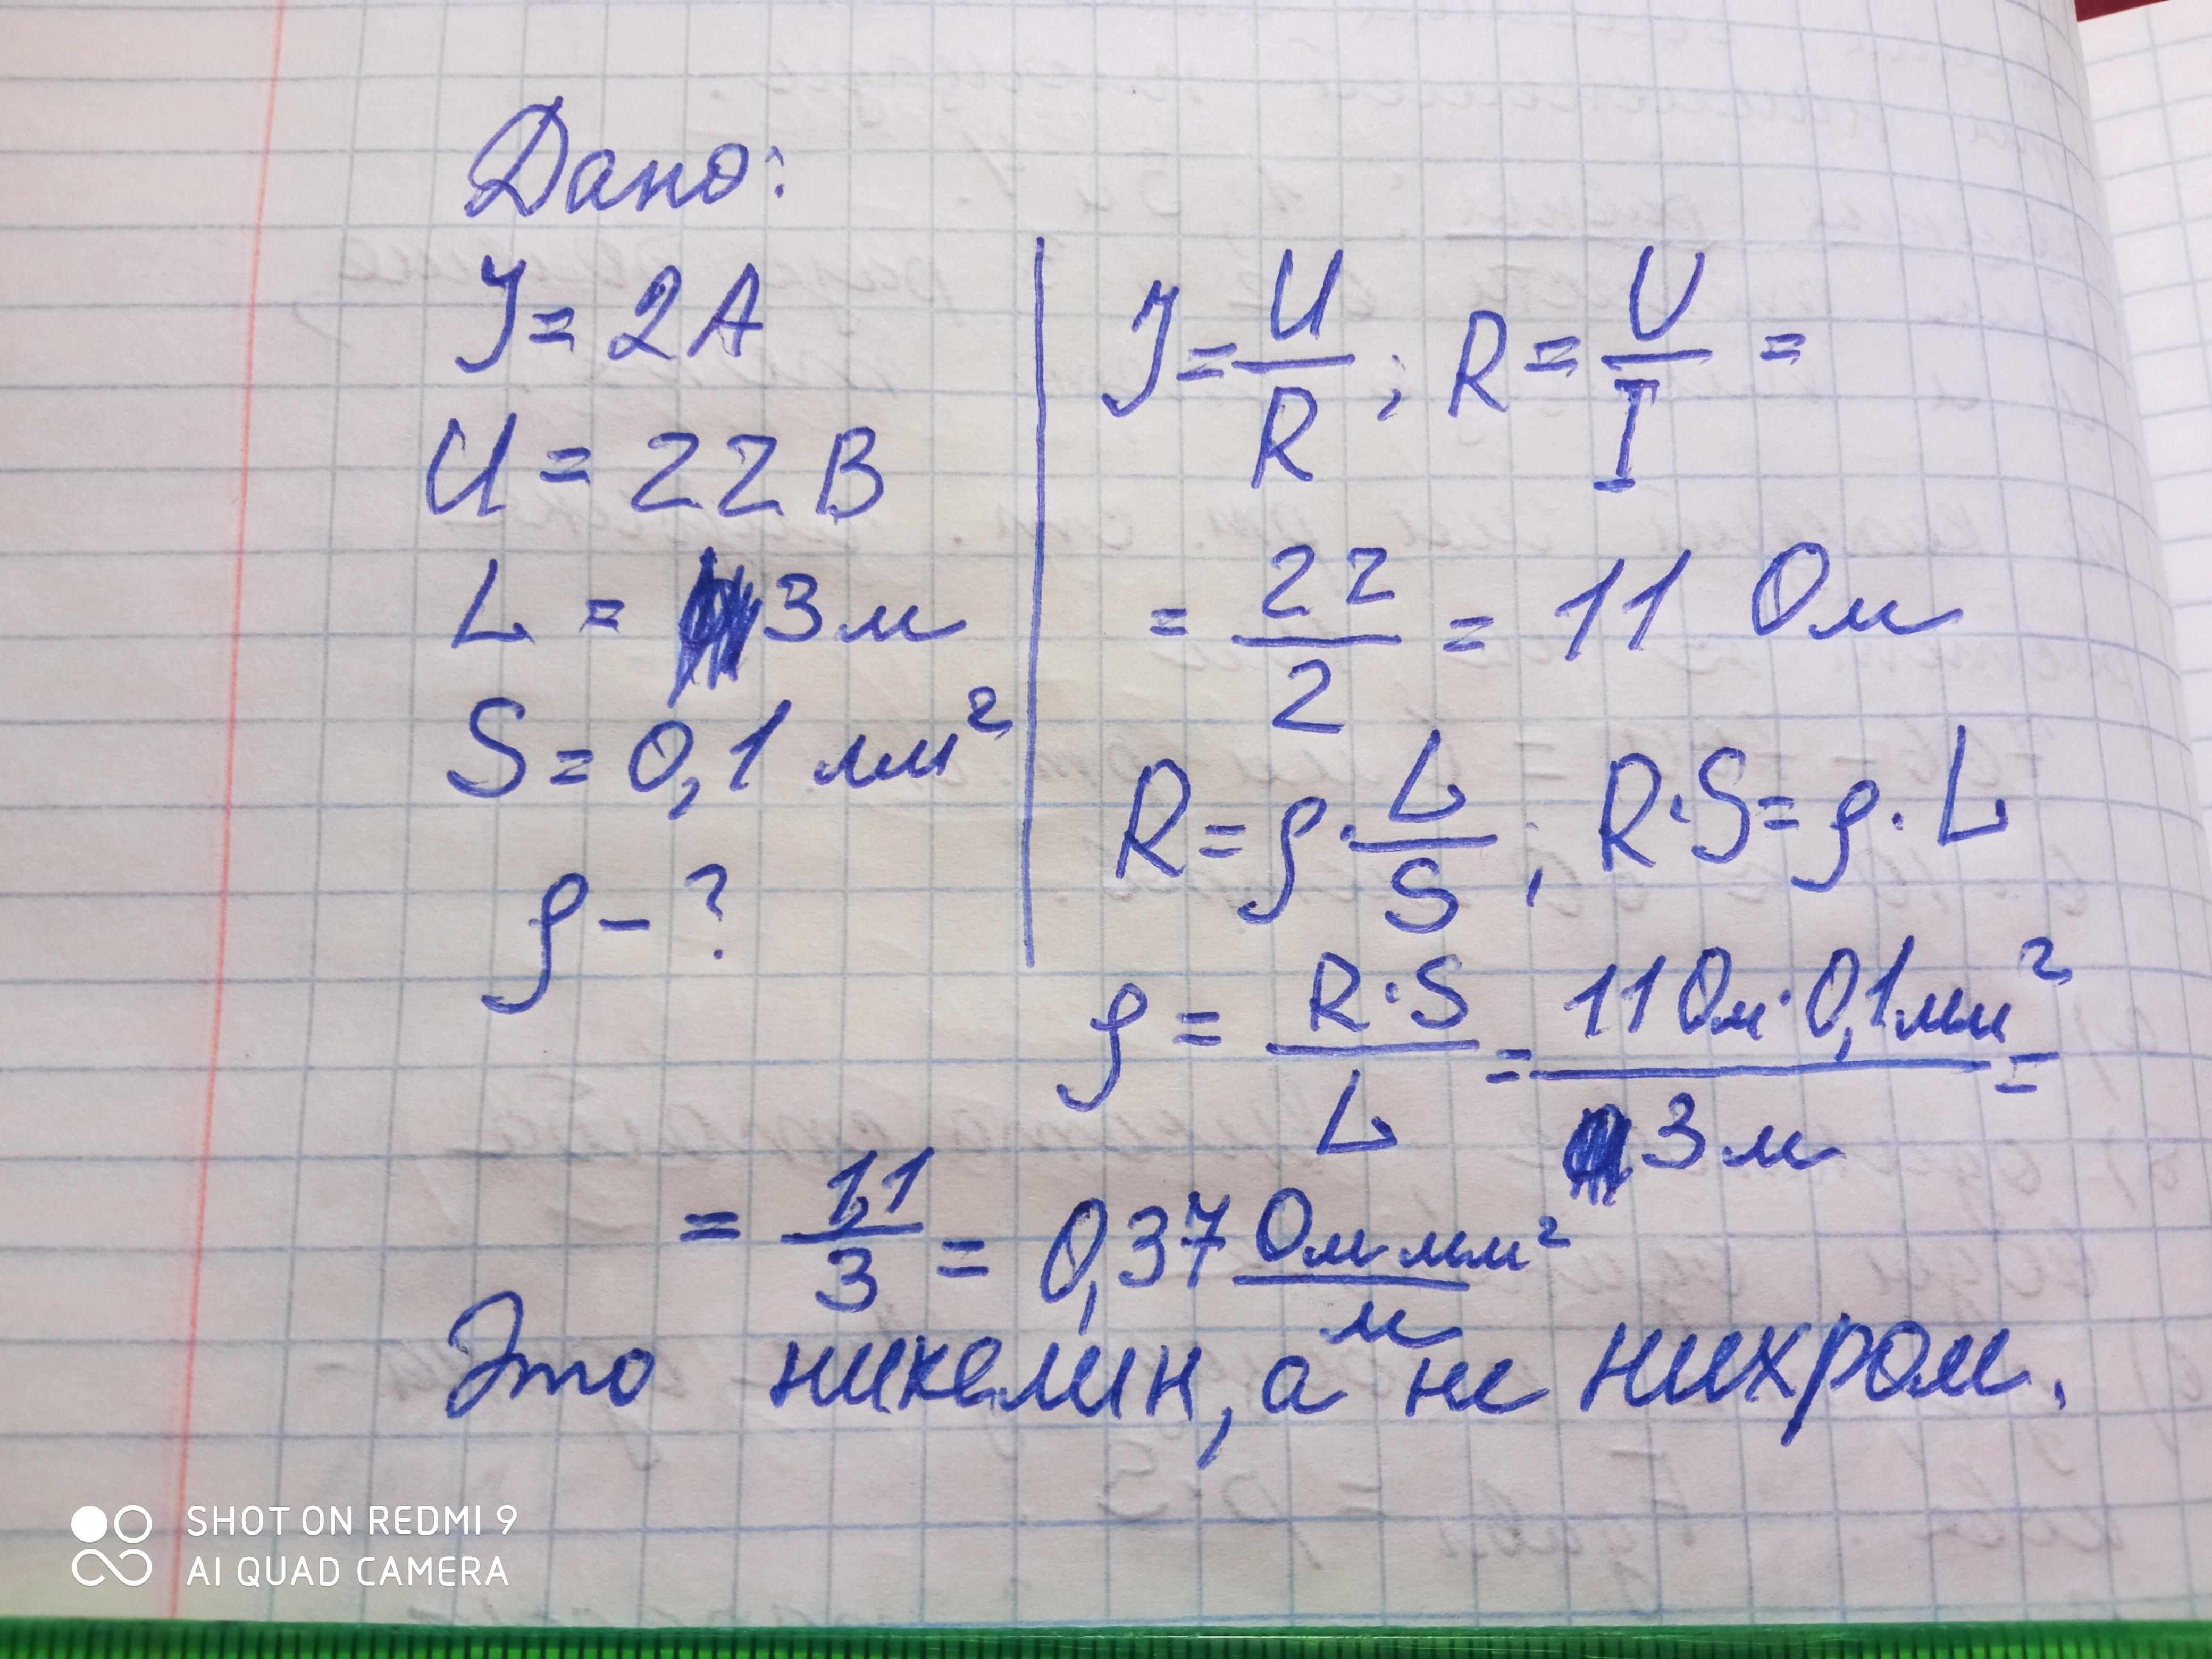 Дано:
J = 2А
U = 22 В
L = 3 м
S = 0,1 мм²
ρ - ?
J = U/R ; R = U/I =
= 22/2 = 11 Ом
R = ρ · L/S , R·S = ρ · L
ρ = R·S/L = 11 Ом · 0,1 мм²/3 м =
= 1,1/3 = 0,37 Ом мм²/м
Это никелин, а не нихром.
SHOT ON REDMI 9
AI QUAD CAMERA